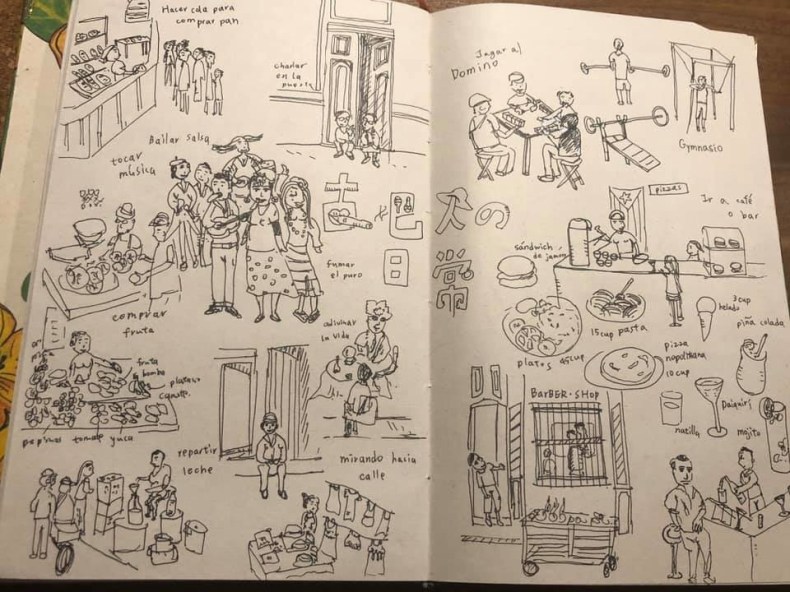 Hacer cola para
comprar pan
charlar
en la
puerta
Bailar salsa
tocar
música
fumar
el puro
comprar
fruta
adivinar
la vida
fruta
bomba
platano
pepinos tomate yuca
repartir
leche
mirando hacia
calle
Jugar al
Domino
Gymnasio
古巴人の
日常
pizzas
Ir a café
o bar
sándwich
de jamon
3 cup
helado
piña colada
15 cup pasta
platos 45 cup
pizza
napolitana
10 cup
natilla
Daiquirí
mojito
BarBER·SHop